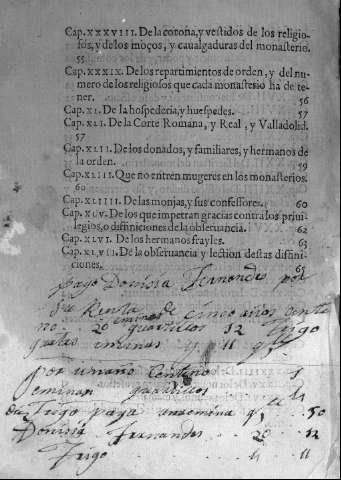 Cap. XXXVIII. De la corona, y vestidos de los religio-
sos, y de los moços, y caualgaduras del monasterio.
55
Cap. XXXIX. De los repartimientos de orden, y del nu-
mero de los religiosos que cada monasterio ha de te-
ner. 56
Cap. XL. De la hospederia, y huespedes. 57
Cap. XLI. De la Corte Romana, y Real, y Valladolid.
57
Cap. XLII. De los donados, y familiares, y hermanos de
la orden. 59
Cap. XLIII. Que no entren mugeres en los monasterios.
60
Cap. XLIIII. De las monjas, y sus confessores. 60
Cap. XLV. De los que impetran gracias contra los priui-
legios, o difiniciones de la obseruancia. 62
Cap. XLVI. De los hermanos frayles. 63
Cap. XLVII. De la obseruancia y lection destas difini-
ciones. 65
pago Donisia Fernandes por
Renta de cinco años
no 20 quartillos 12 Trigo
eminas 4 11
por un año Centeno
eminas quartillos
de Trigo paga 50
Donisia Fernandes 20 12
Trigo 4 11